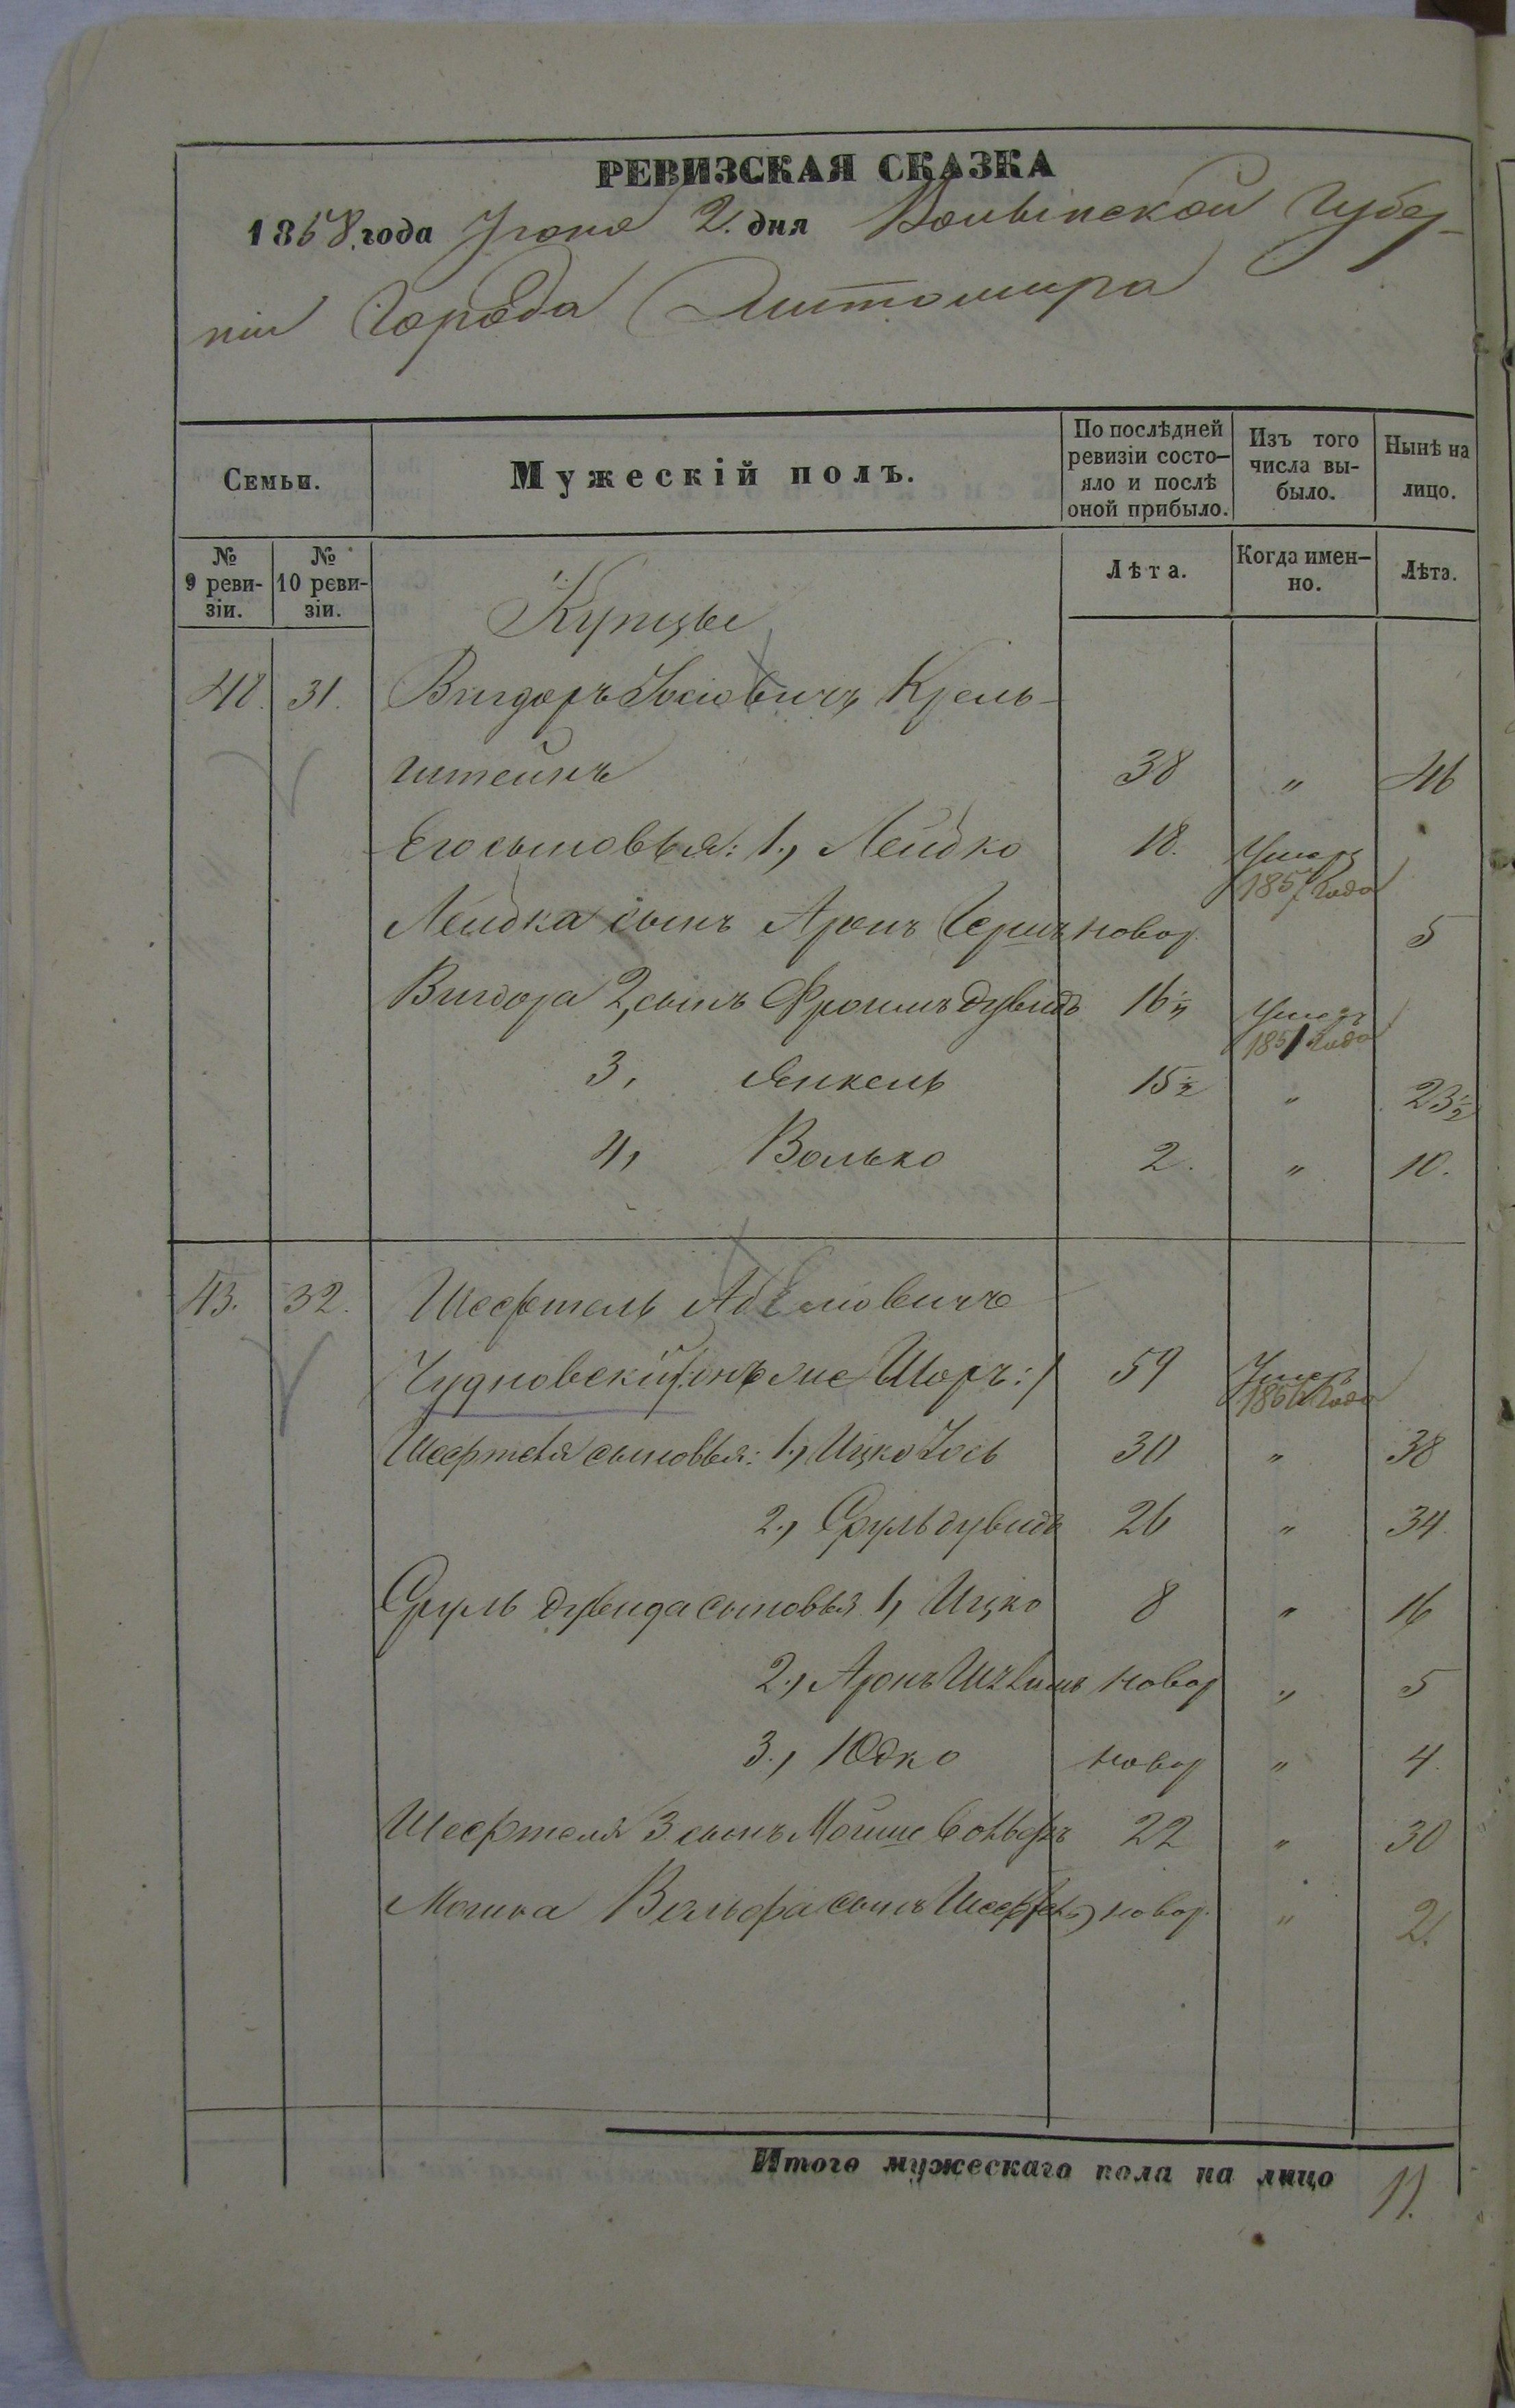 РЕВИЗСКАЯ СКАЗКА
1858 года Іюня 2 дня Волынской Губер-
ніи Города Житомира
Семьи.
Мужескій полъ.
По послѣдней ревизіи состо-
яло и послѣ оной прибыло.
Изъ того числа вы-
было.
Нынѣ на лицо.
№ 9 реви-
зіи.
№ 10 реви-
зіи.
Лѣта.
Когда имен-
но.
Лѣта.
Купцы
31. Вигдоръ Іосіовичъ Крель-
штейнъ 38 " 46
Его сыновья: 1., Лейбко 18. Умеръ 1857 Года
Лейбка сынъ Аронъ Гершъ новор. 5
Вигдора 2, сынъ Фроимъ Дувидъ 16 Умеръ 1851 Года
3, Янкель 15½ " 23½
4, Волько 2. " 10.
43. 32. Шефтель Абелиовичъ
Чудновскій /:онъ же Шоръ:/ 59 Умеръ 1856 Года
Шефтеля сыновья: 1., Ицко Іось 30 " 38
2., Сруль дувидъ 26 " 34.
Сруль дувида сыновья 1, Ицко 8 " 16
2., Аронъ новор " 5
3., Юдко новор " 4.
Шефтеля 3 сынъ Мошше Вольфъ 22 " 30
Мошка Вольфа сынъ Шефтель новор. " 2.
Итого мужескаго пола на лицо 11.